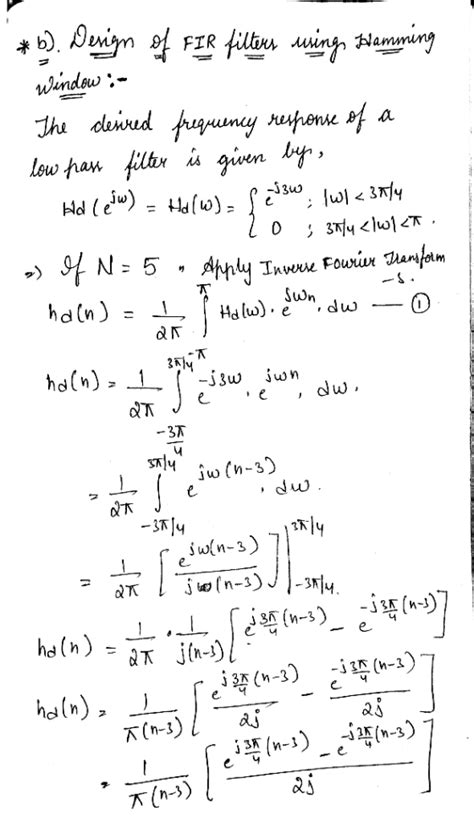 * b). Design of FIR filters using Hamming
Window :-
The desired frequency response of a
low pass filter is given by,
Hd(e^{jω}) = Hd(ω) = { e^{-j3ω} ; |ω| < 3π/4
0 ; 3π/4 < |ω| < π.
=) If N = 5 , Apply Inverse Fourier Transform
hd(n) = 1/2π ∫_{-π}^{π} Hd(ω). e^{jωn}. dω — ①
hd(n) = 1/2π ∫_{-3π/4}^{3π/4} e^{-j3ω}. e^{jωn}, dω.
= 1/2π ∫_{-3π/4}^{3π/4} e^{jω(n-3)}. dω.
= 1/2π [ e^{jω(n-3)} / j(n-3) ] |_{-3π/4}^{3π/4}.
hd(n) = 1/2π . 1/j(n-3) [ e^{j3π/4(n-3)} - e^{-j3π/4(n-3)} ]
hd(n) = 1/π(n-3) [ e^{j3π/4(n-3)}/2j - e^{-j3π/4(n-3)}/2j ]
= 1/π(n-3) [ e^{j3π/4(n-3)} - e^{-j3π/4(n-3)} / 2j ]